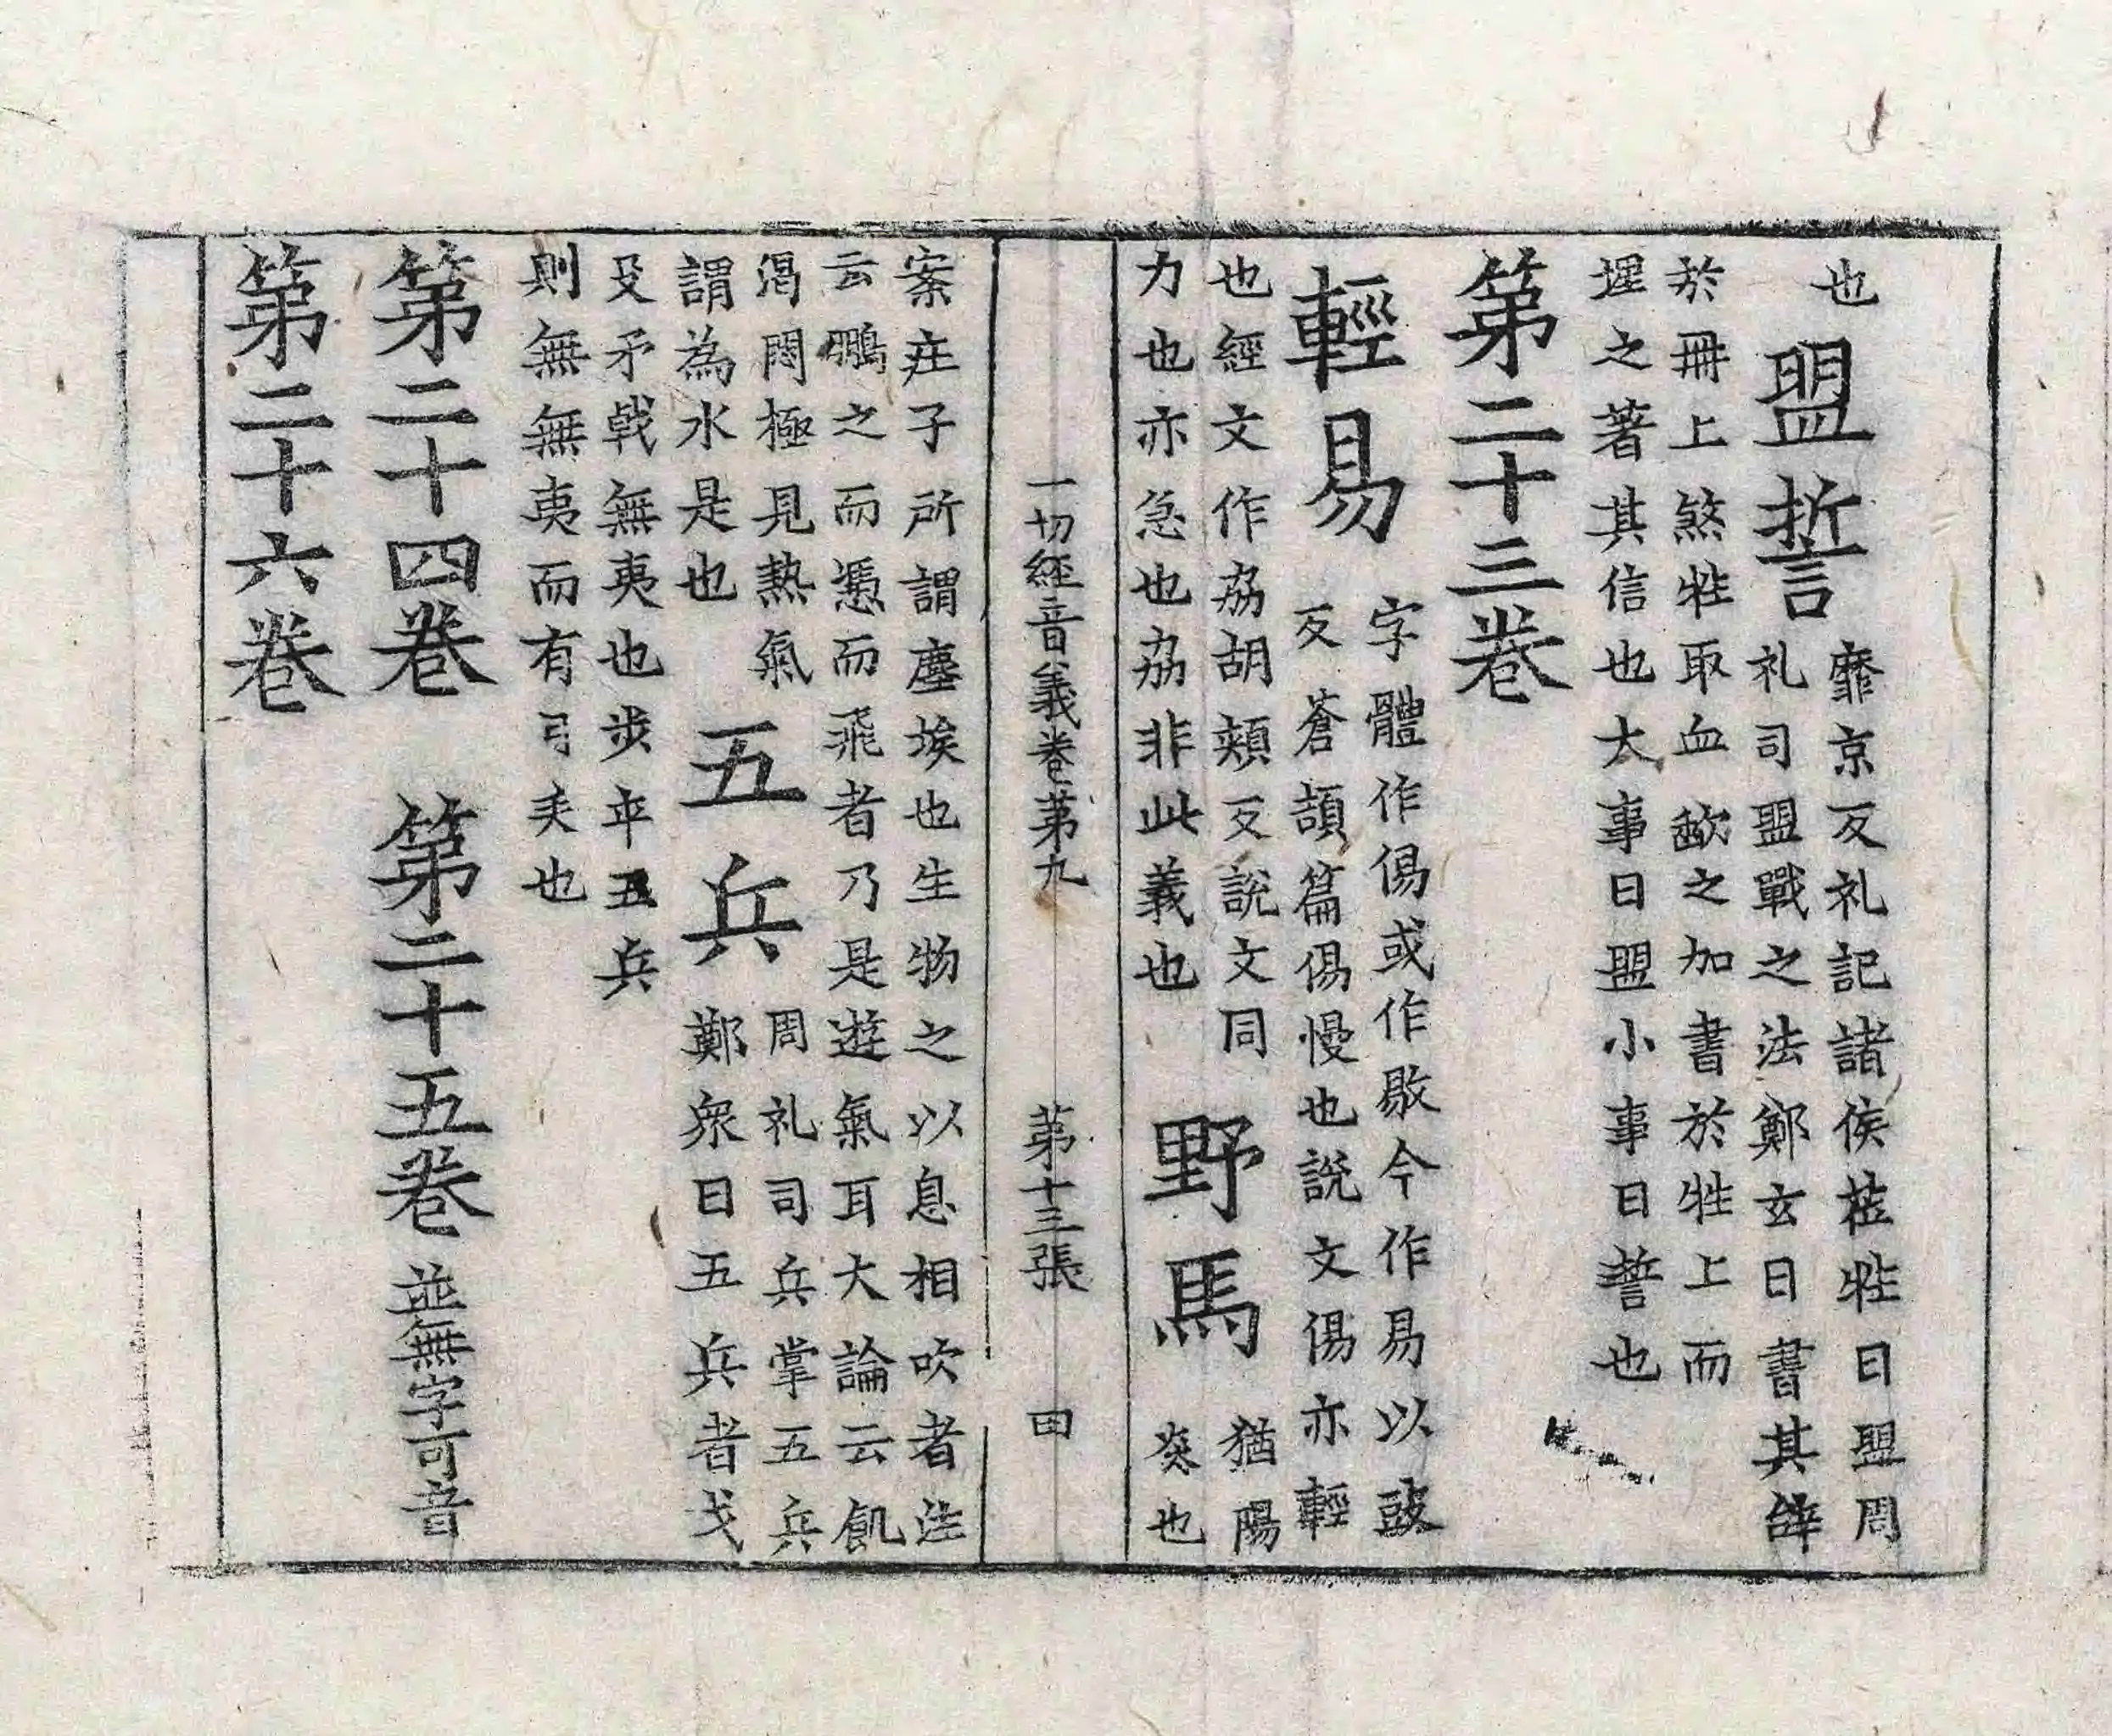 也
盟誓
靡京反礼記諸侯莅牲曰盟周
礼司盟戰之法鄭玄曰書其辝
於冊上煞牲取血歃之加書於牲上而
埋之著其信也大事曰盟小事曰誓也
第二十三卷
輕易
字體作傷或作敭今作易以豉
反蒼頡篇傷慢也說文傷亦輕
也經文作劦胡頰反說文同
力也亦急也劦非此義也
野馬
猶陽
炎也
一切經音義卷第九
第十三張
田
案庄子所謂塵埃也生物之以息相吹者注
云鵬之而憑而飛者乃是遊氣耳大論云飢
渴悶極見熱氣
謂為水是也
五兵
周礼司兵掌五兵
鄭衆曰五兵者戈
殳矛戟無夷也步卒五兵
則無無夷而有弓矢也
第二十四卷
第二十五卷
並無字可音
第二十六卷